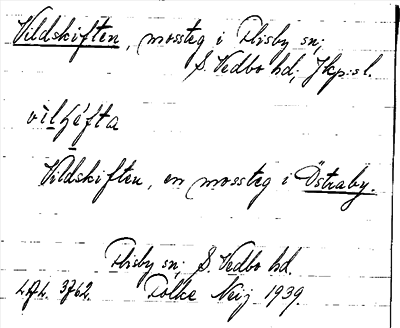 Vildskiften, mossteg i Flisby sn;
S. Vedbo hd; Jkp:s l.
Vildskiften, en mossteg i Östraby.
Flisby sn; S. Vedbo hd.
3762. Folke Neij 1939.